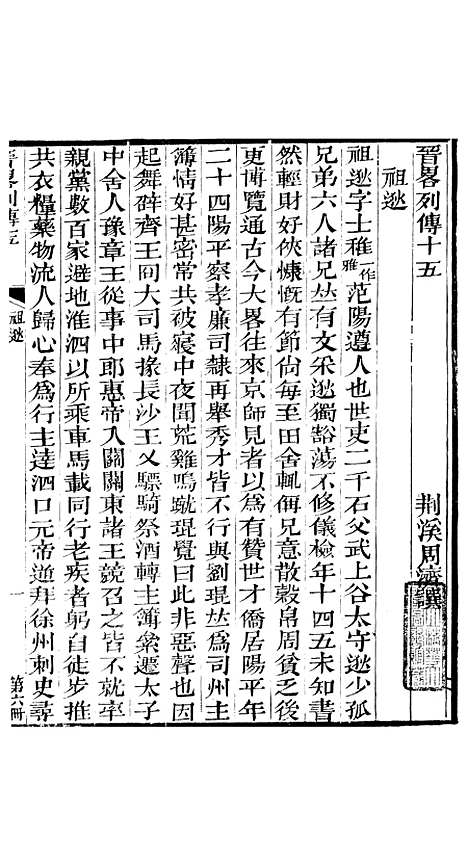 晉畧列傳十五　荆溪周濟譔
祖逖
祖逖字士稚一作雅范陽遒人也世吏二千石父武上谷太守逖少孤
兄弟六人諸兄竝有文采逖獨豁蕩不修儀檢年十四五未知書
然輕財好俠慷慨有節尙每至田舍輒偁兄意散穀帛周貧乏後
更博覽通古今大畧往來京師見者以爲有贊世才僑居陽平年
二十四陽平察孝廉司隷再舉秀才皆不行與劉琨竝爲司州主
簿情好甚密常共破寢中夜聞荒雞鳴蹴琨覺曰此非惡聲也因
起舞辟齊王冏大司馬掾長沙王乂驃騎祭酒轉主簿絫遷太子
中舍人豫章王從事中郎惠帝入關關東諸王競召之皆不就率
親黨數百家避地淮泗以所乘車馬載同行老疾者躬自徒步推
共衣糧藥物流人歸心奉爲行主達泗口元帝逆拜徐州刺史尋
晉畧列傳十五　祖逖　一　第六冊